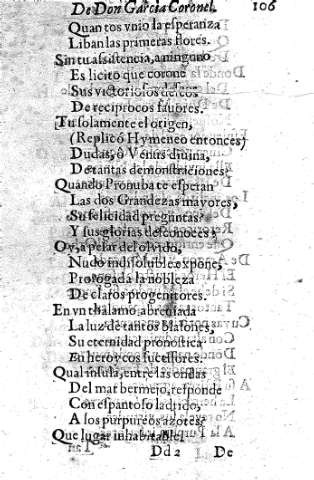 De Don Garcia Coronel. 106
Quantos vnio la esperanza
Liban las primeras flores.
Sin tu assistencia, a ninguno
Es licito que corone
Sus victoriosos deseos
De reciprocos fauores.
Tu solamente el origen,
(Replicó Hymeneo entonces)
Dudas, ô Venus diuina,
De tantas demonstraciones?
Quando Pronuba te esperan
Las dos Grandezas mayores,
Su felicidad preguntas?
Y sus glorias desconoces?
Oy, a pesar del oluido,
Nudo indisoluble expone,
Prorogada la nobleza
De claros progenitores.
En vn thalamo abreuiada
La luz de tantos blasones,
Su eternidad pronostica
En heroycos sucessores.
Qual insula, entre las ondas
Del mar bermejo, responde
Con espantoso ladrido,
A los purpureos azotes:
Que lugar inhabitable
Dd 2 De